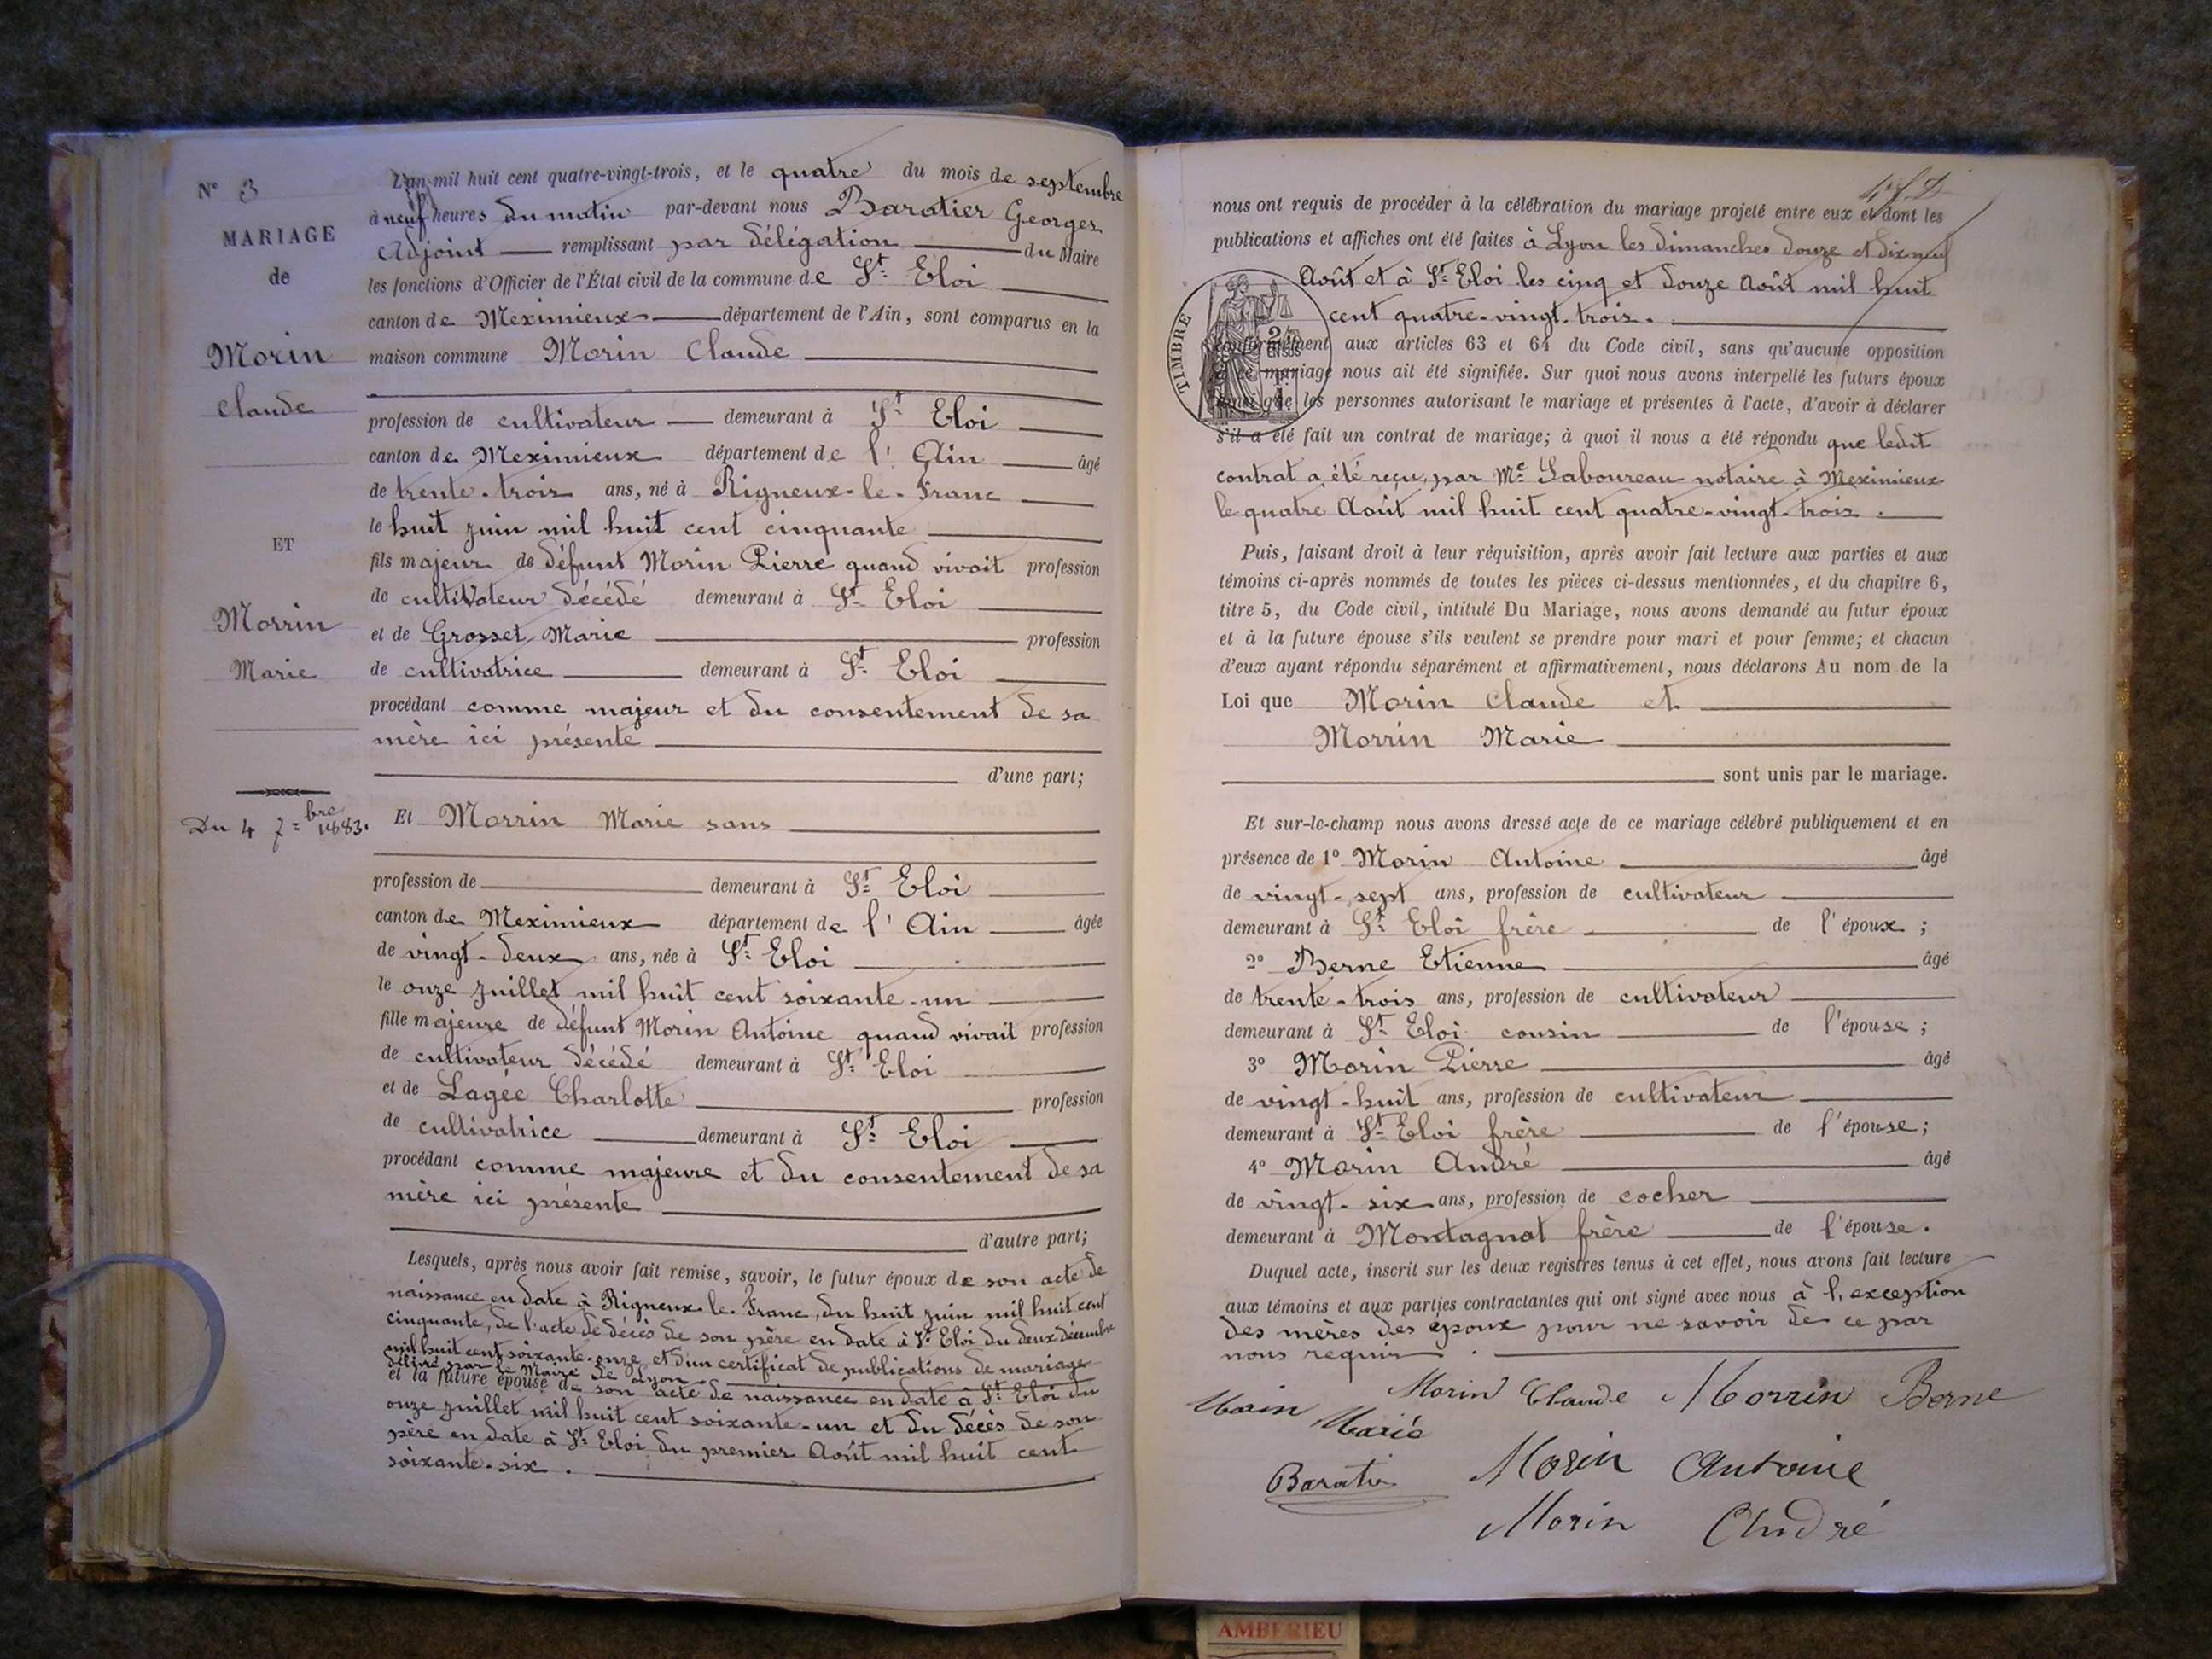 N° 3
MARIAGE
de
Morin
Claude
ET
Morrin
Marie
Du 4 7=bre 1883.
L'an mil huit cent quatre-vingt-trois, et le quatre du mois de septembre
à neuf heures du matin par-devant nous Baratier Georges
Adjoint remplissant par délégation du Maire
les fonctions d'Officier de l'État civil de la commune de St Eloi
canton de Meximieux département de l'Ain, sont comparus en la
maison commune Morin Claude
profession de cultivateur demeurant à St Eloi
canton de Meximieux département de l'Ain âgé
de trente-trois ans, né à Rigneux-le-Franc
le huit juin mil huit cent cinquante
fils majeur de défunt Morin Pierre quand vivait profession
de cultivateur décédé demeurant à St Eloi
et de Grosset Marie profession
de cultivatrice demeurant à St Eloi
procédant comme majeur et du consentement de sa
mère ici présente
d'une part;
Et Morrin Marie sans
profession de demeurant à St Eloi
canton de Meximieux département de l'Ain âgée
de vingt-deux ans, née à St Eloi
le onze juillet mil huit cent soixante-un
fille majeure de défunt Morin Antoine quand vivait profession
de cultivateur décédé demeurant à St Eloi
et de Lagée Charlotte profession
de cultivatrice demeurant à St Eloi
procédant comme majeure et du consentement de sa
mère ici présente
d'autre part;
Lesquels, après nous avoir fait remise, savoir, le futur époux de son acte de
naissance en date à Rigneux-le-Franc, du huit juin mil huit cent
cinquante, de l'acte de décès de son père en date à St Eloi du deux décembre
mil huit cent soixante-onze et d'un certificat de publications de mariage
délivré par le Maire de Lyon.
et la future épouse de son acte de naissance en date à St Eloi du
onze juillet mil huit cent soixante-un et du décès de son
père en date à St Eloi du premier Août mil huit cent
soixante-six.
nous ont requis de procéder à la célébration du mariage projeté entre eux et dont les
publications et affiches ont été faites à Lyon les dimanches douze et dix neuf
Août et à St Eloi les cinq et douze Août mil huit
cent quatre-vingt-trois.
TIMBRE
2/10
EN SUS
conformément aux articles 63 et 64 du Code civil, sans qu'aucune opposition
à ce mariage nous ait été signifiée. Sur quoi nous avons interpellé les futurs époux
ainsi que les personnes autorisant le mariage et présentes à l'acte, d'avoir à déclarer
s'il a été fait un contrat de mariage; à quoi il nous a été répondu que ledit
contrat a été reçu par Me Laboureau notaire à Meximieux
le quatre Août mil huit cent quatre-vingt-trois.
Puis, faisant droit à leur réquisition, après avoir fait lecture aux parties et aux
témoins ci-après nommés de toutes les pièces ci-dessus mentionnées, et du chapitre 6,
titre 5, du Code civil, intitulé Du Mariage, nous avons demandé au futur époux
et à la future épouse s'ils veulent se prendre pour mari et pour femme; et chacun
d'eux ayant répondu séparément et affirmativement, nous déclarons Au nom de la
Loi que Morin Claude et
Morrin Marie
sont unis par le mariage.
Et sur-le-champ nous avons dressé acte de ce mariage célébré publiquement et en
présence de 1° Morin Antoine âgé
de vingt-sept ans, profession de cultivateur
demeurant à St Eloi frère de l'époux;
2° Berne Etienne âgé
de trente-trois ans, profession de cultivateur
demeurant à St Eloi cousin de l'épouse;
3° Morin Pierre âgé
de vingt-huit ans, profession de cultivateur
demeurant à St Eloi frère de l'épouse;
4° Morin André âgé
de vingt-six ans, profession de cocher
demeurant à Montagnat frère de l'épouse.
Duquel acte, inscrit sur les deux registres tenus à cet effet, nous avons fait lecture
aux témoins et aux parties contractantes qui ont signé avec nous à l'exception
des mères des époux pour ne savoir de ce par
nous requis.
Morin Claude Morrin Berne
Marie
Baratier Morin Antoine
Morin André
AMBERIEU